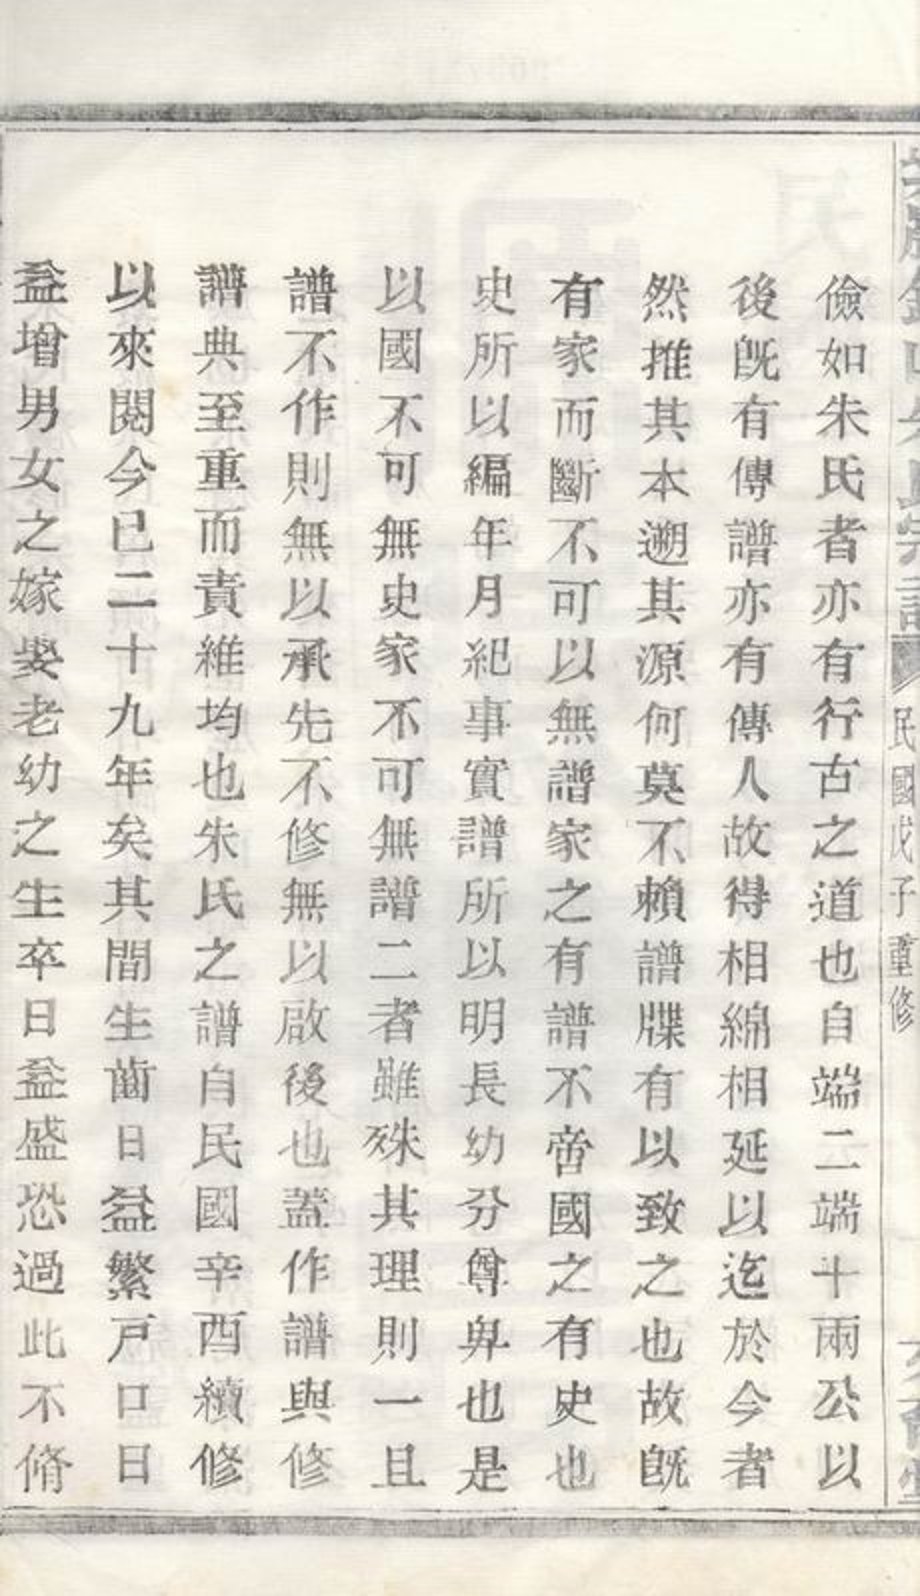 民國戊子重修
儉如朱氏者亦有行古之道也自端二端十兩公以
後旣有傳譜亦有傳人故得相綿相延以迄於今者
然推其本遡其源何莫不賴譜牒有以致之也故旣
有家而斷不可以無譜家之有譜不啻國之有史也
史所以編年月紀事實譜所以明長幼分尊卑也是
以國不可無史家不可無譜二者雖殊其理則一且
譜不作則無以承先不修無以啟後也蓋作譜與修
譜典至重而責維均也朱氏之譜自民國辛酉續修
以來閱今已二十九年矣其間生齒日益繁戸口日
益增男女之嫁娶老幼之生卒日益盛恐過此不脩